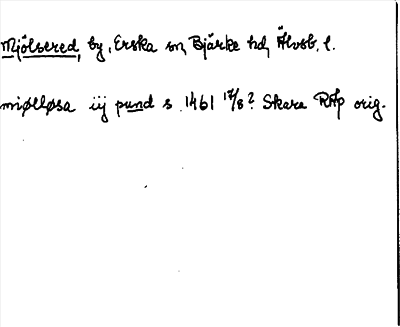 Mjölsered, by, Erska sn, Bjärke hd, Älvsb. l.
miølløsa iij pund s. 1461 17/8? Skara RAp orig.